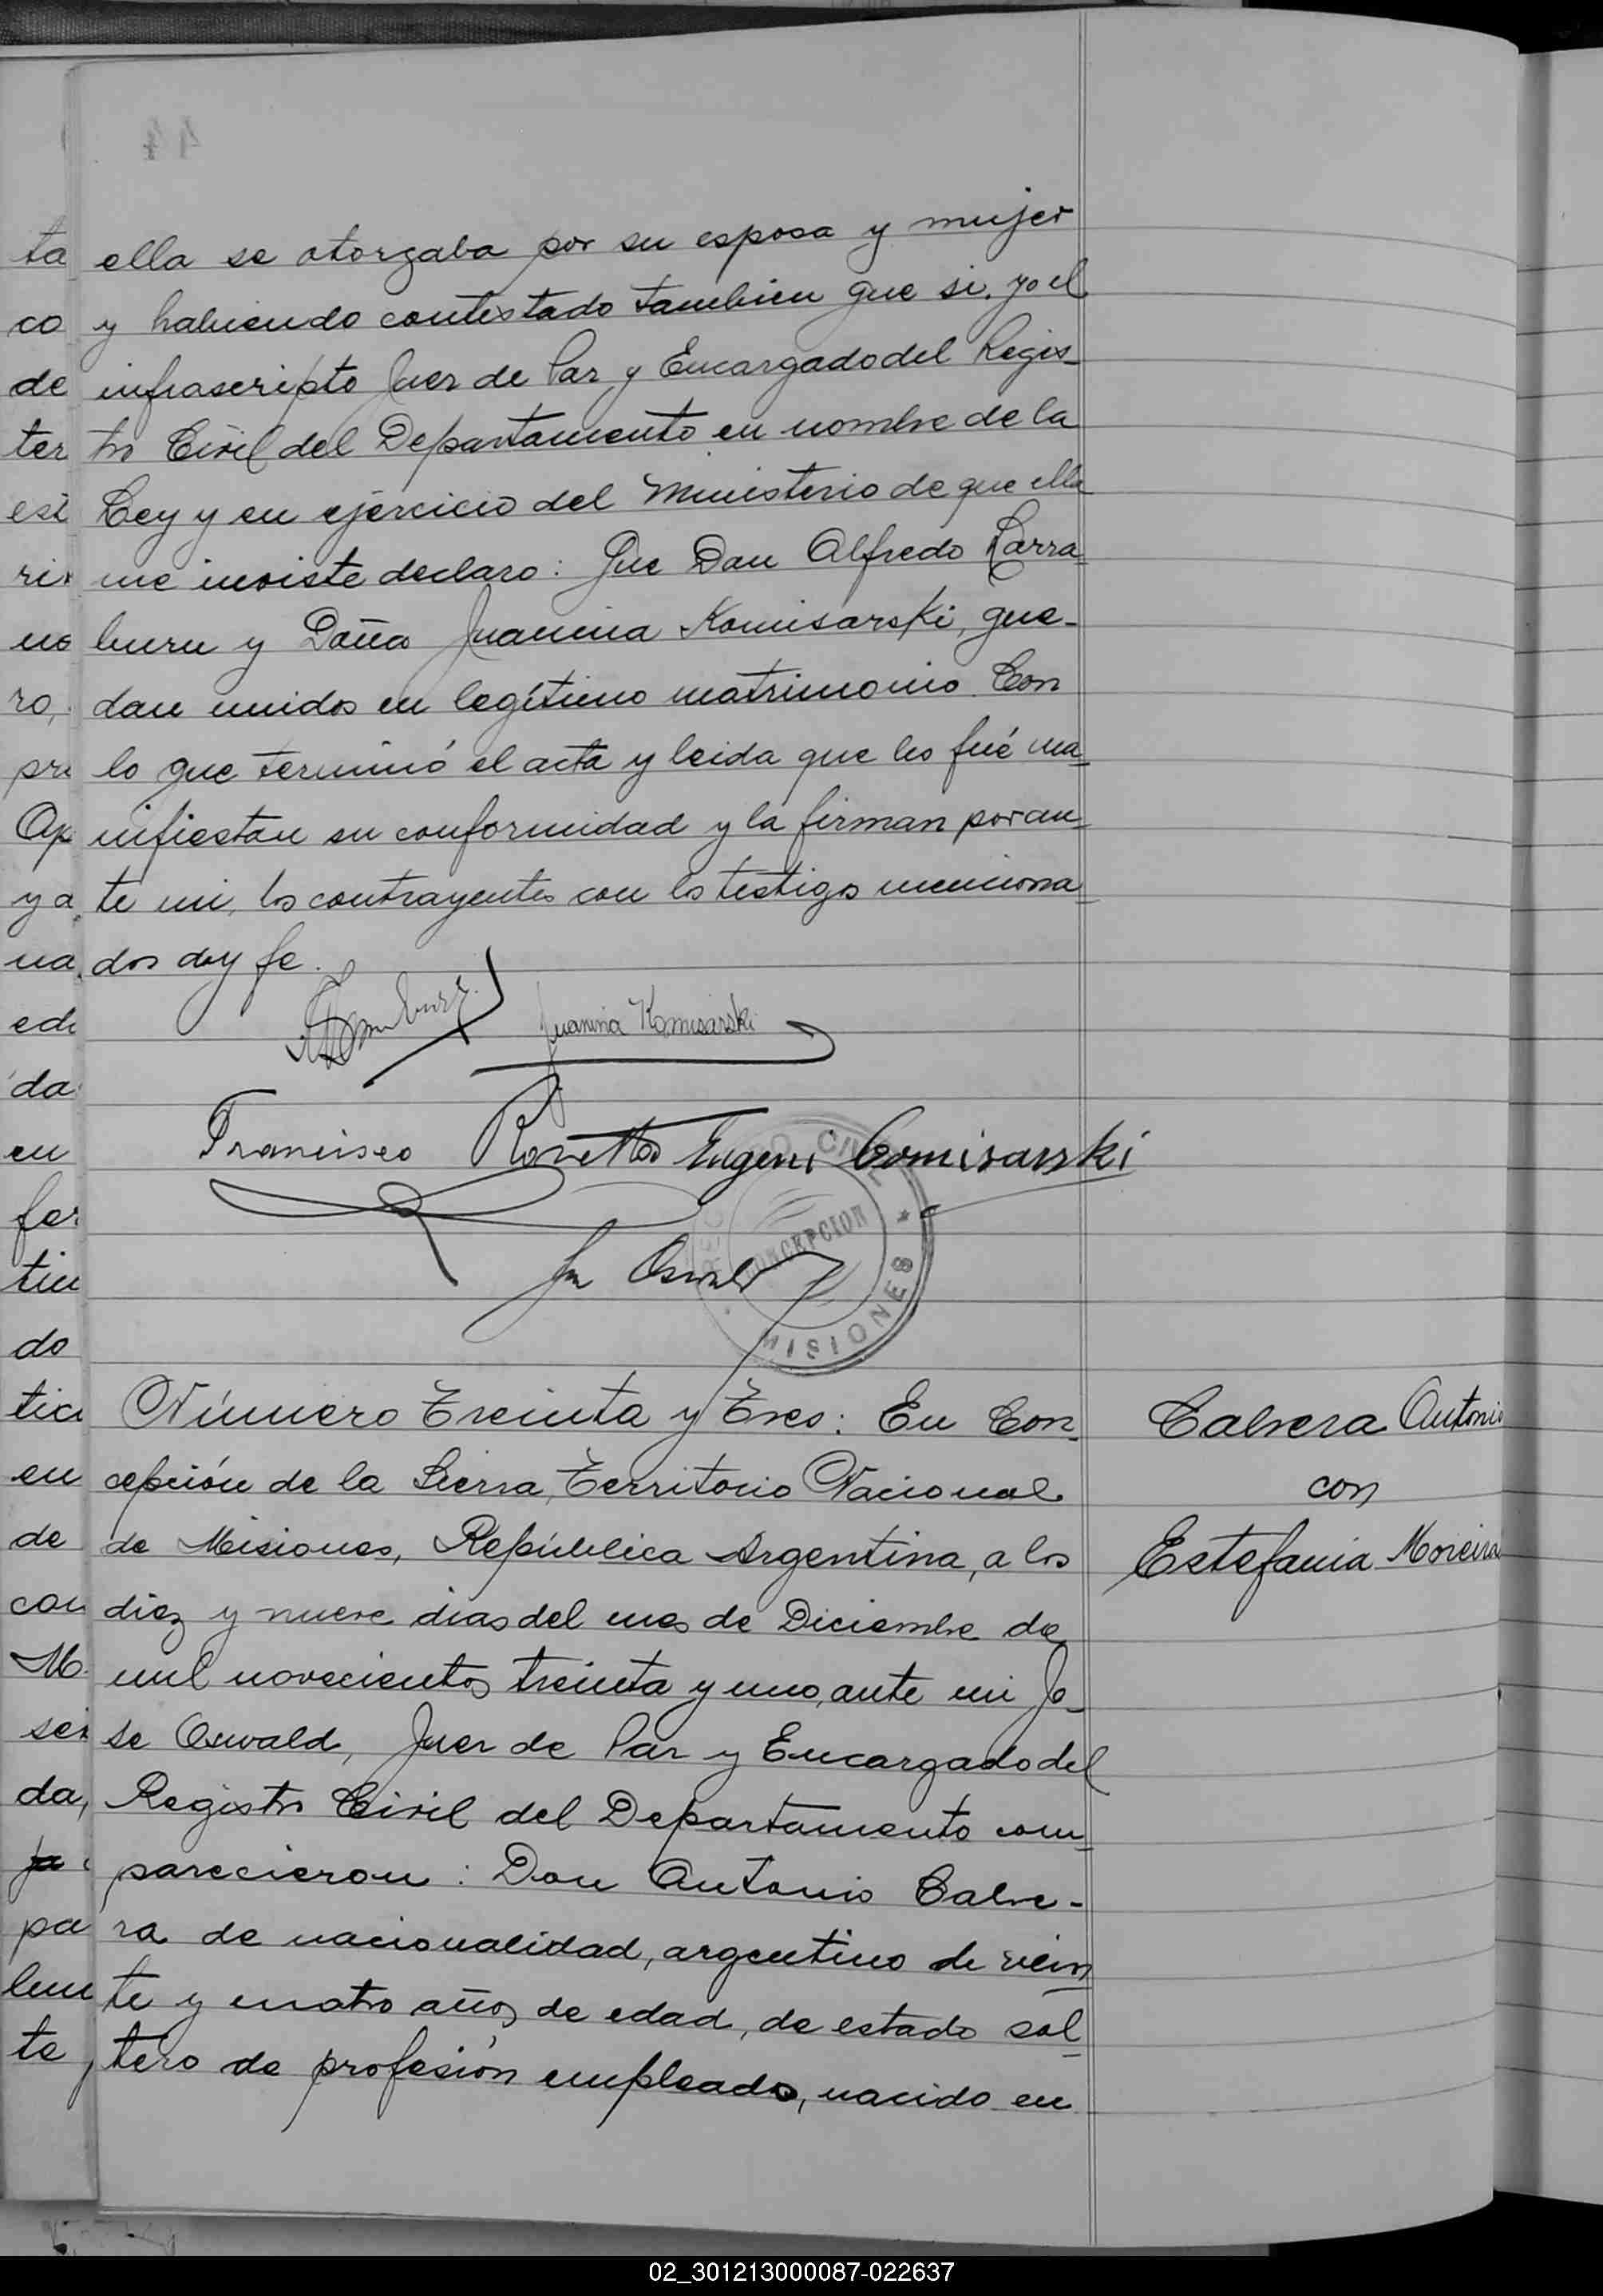 ella se otorgaba por su esposa y mujer
y habiendo contestado tambien que si. yo el
infrascripto Juez de Paz y Encargado del Regis-
tro Civil del Departamento en nombre de la
Ley y en ejercicio del Ministerio de que ella
me inviste declaro: Que Don Alfredo Larra-
buru y Doña Juanina Komisarski, que-
dan unidos en legítimo matrimonio. Con
lo que terminó el acta y leida que les fué ma-
nifiestan su conformidad y la firman por an-
te mi, los contrayentes con los testigos menciona-
dos doy fe.
Juanina Komisarski
Francisco Eugeni Comisarski
CONCEPCION
MISIONES
Número Treinta y Tres: En Con-
cepción de la Sierra, Territorio Nacional
de Misiones, República Argentina, a los
diez y nueve dias del mes de Diciembre de
mil novecientos treinta y uno, ante mi Jo-
se Oswald, Juez de Paz y Encargado del
Registro Civil del Departamento com-
parecieron: Don Antonio Cabre-
ra de nacionalidad, argentino de vein
te y cuatro años de edad, de estado sol-
tero de profesión empleado, nacido en
Cabrera Antonio
con
Estefania Moreira
ta
co
de
ter
no
ro,
Ap
y a
na
da
en
do
en
de
con
da,
pa
te
02_301213000087-022637